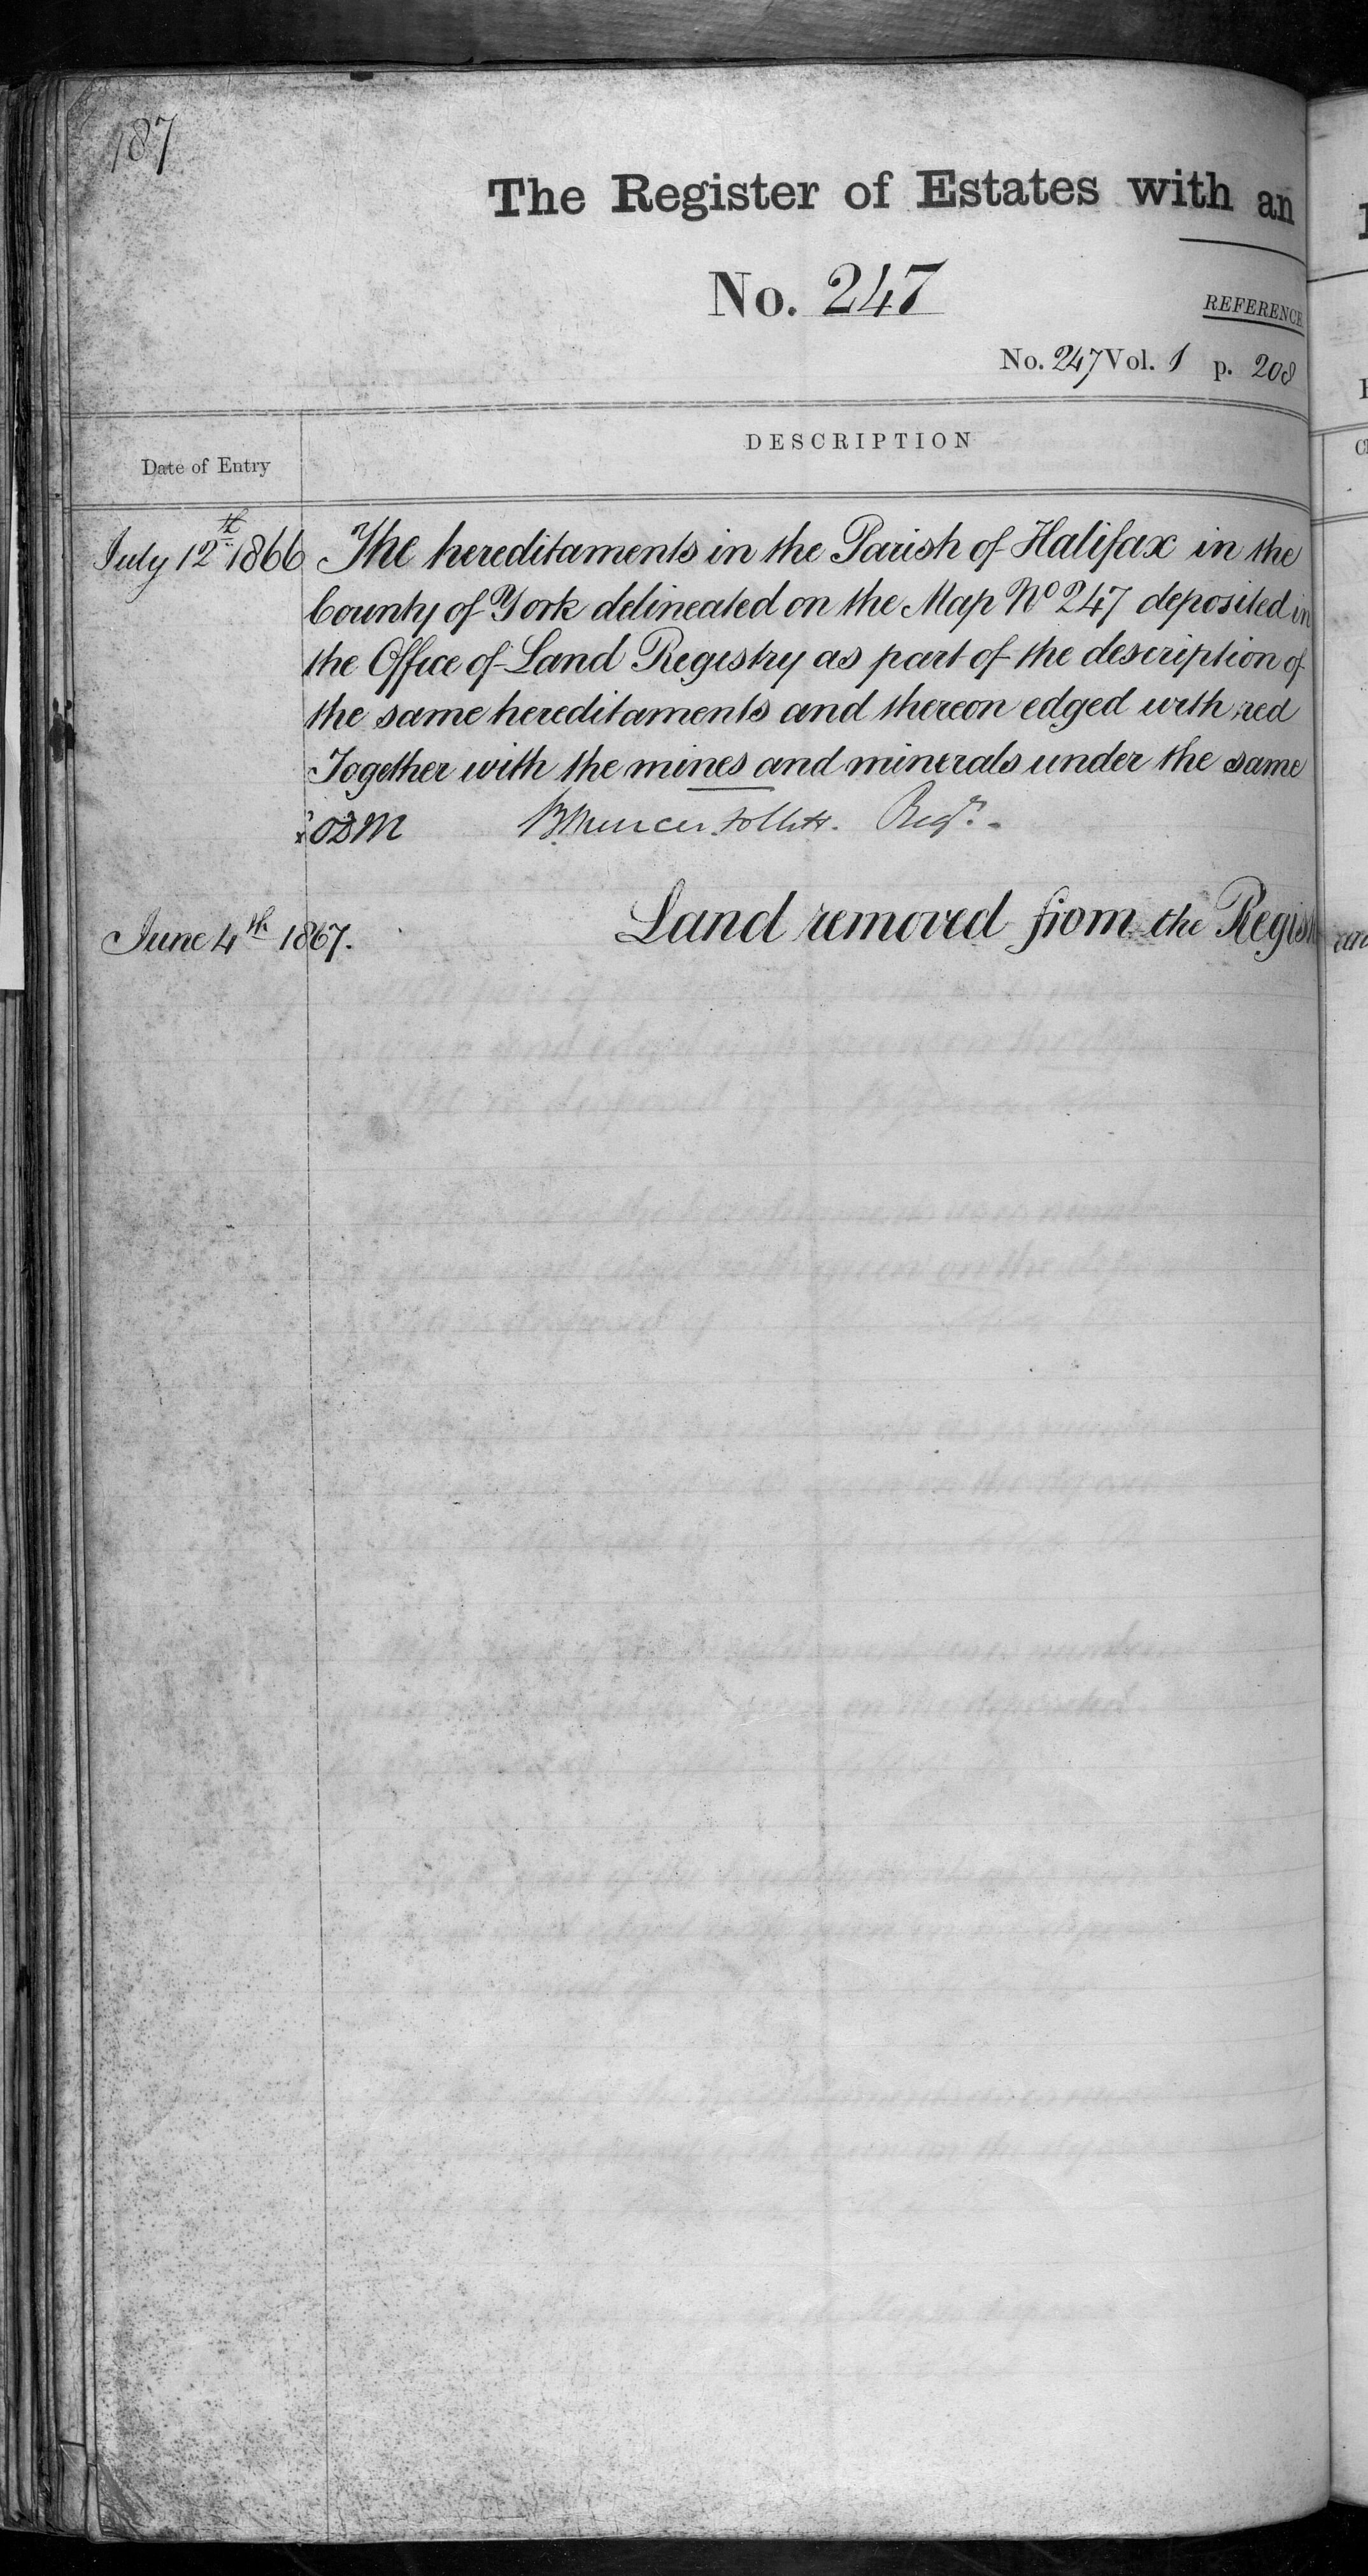 187
The Register of Estates with an
No. 247
REFERENCE
No. 247 Vol. 1 p. 208
DESCRIPTION
Date of Entry
July 12th 1866 The hereditaments in the Parish of Halifax in the
County of York delineated on the Map No 247 deposited in
the Office of Land Registry as part of the description of
the same hereditaments and thereon edged with red
Together with the mines and minerals under the same
Follett. Regr.
June 4th 1867. Land removed from the Regist